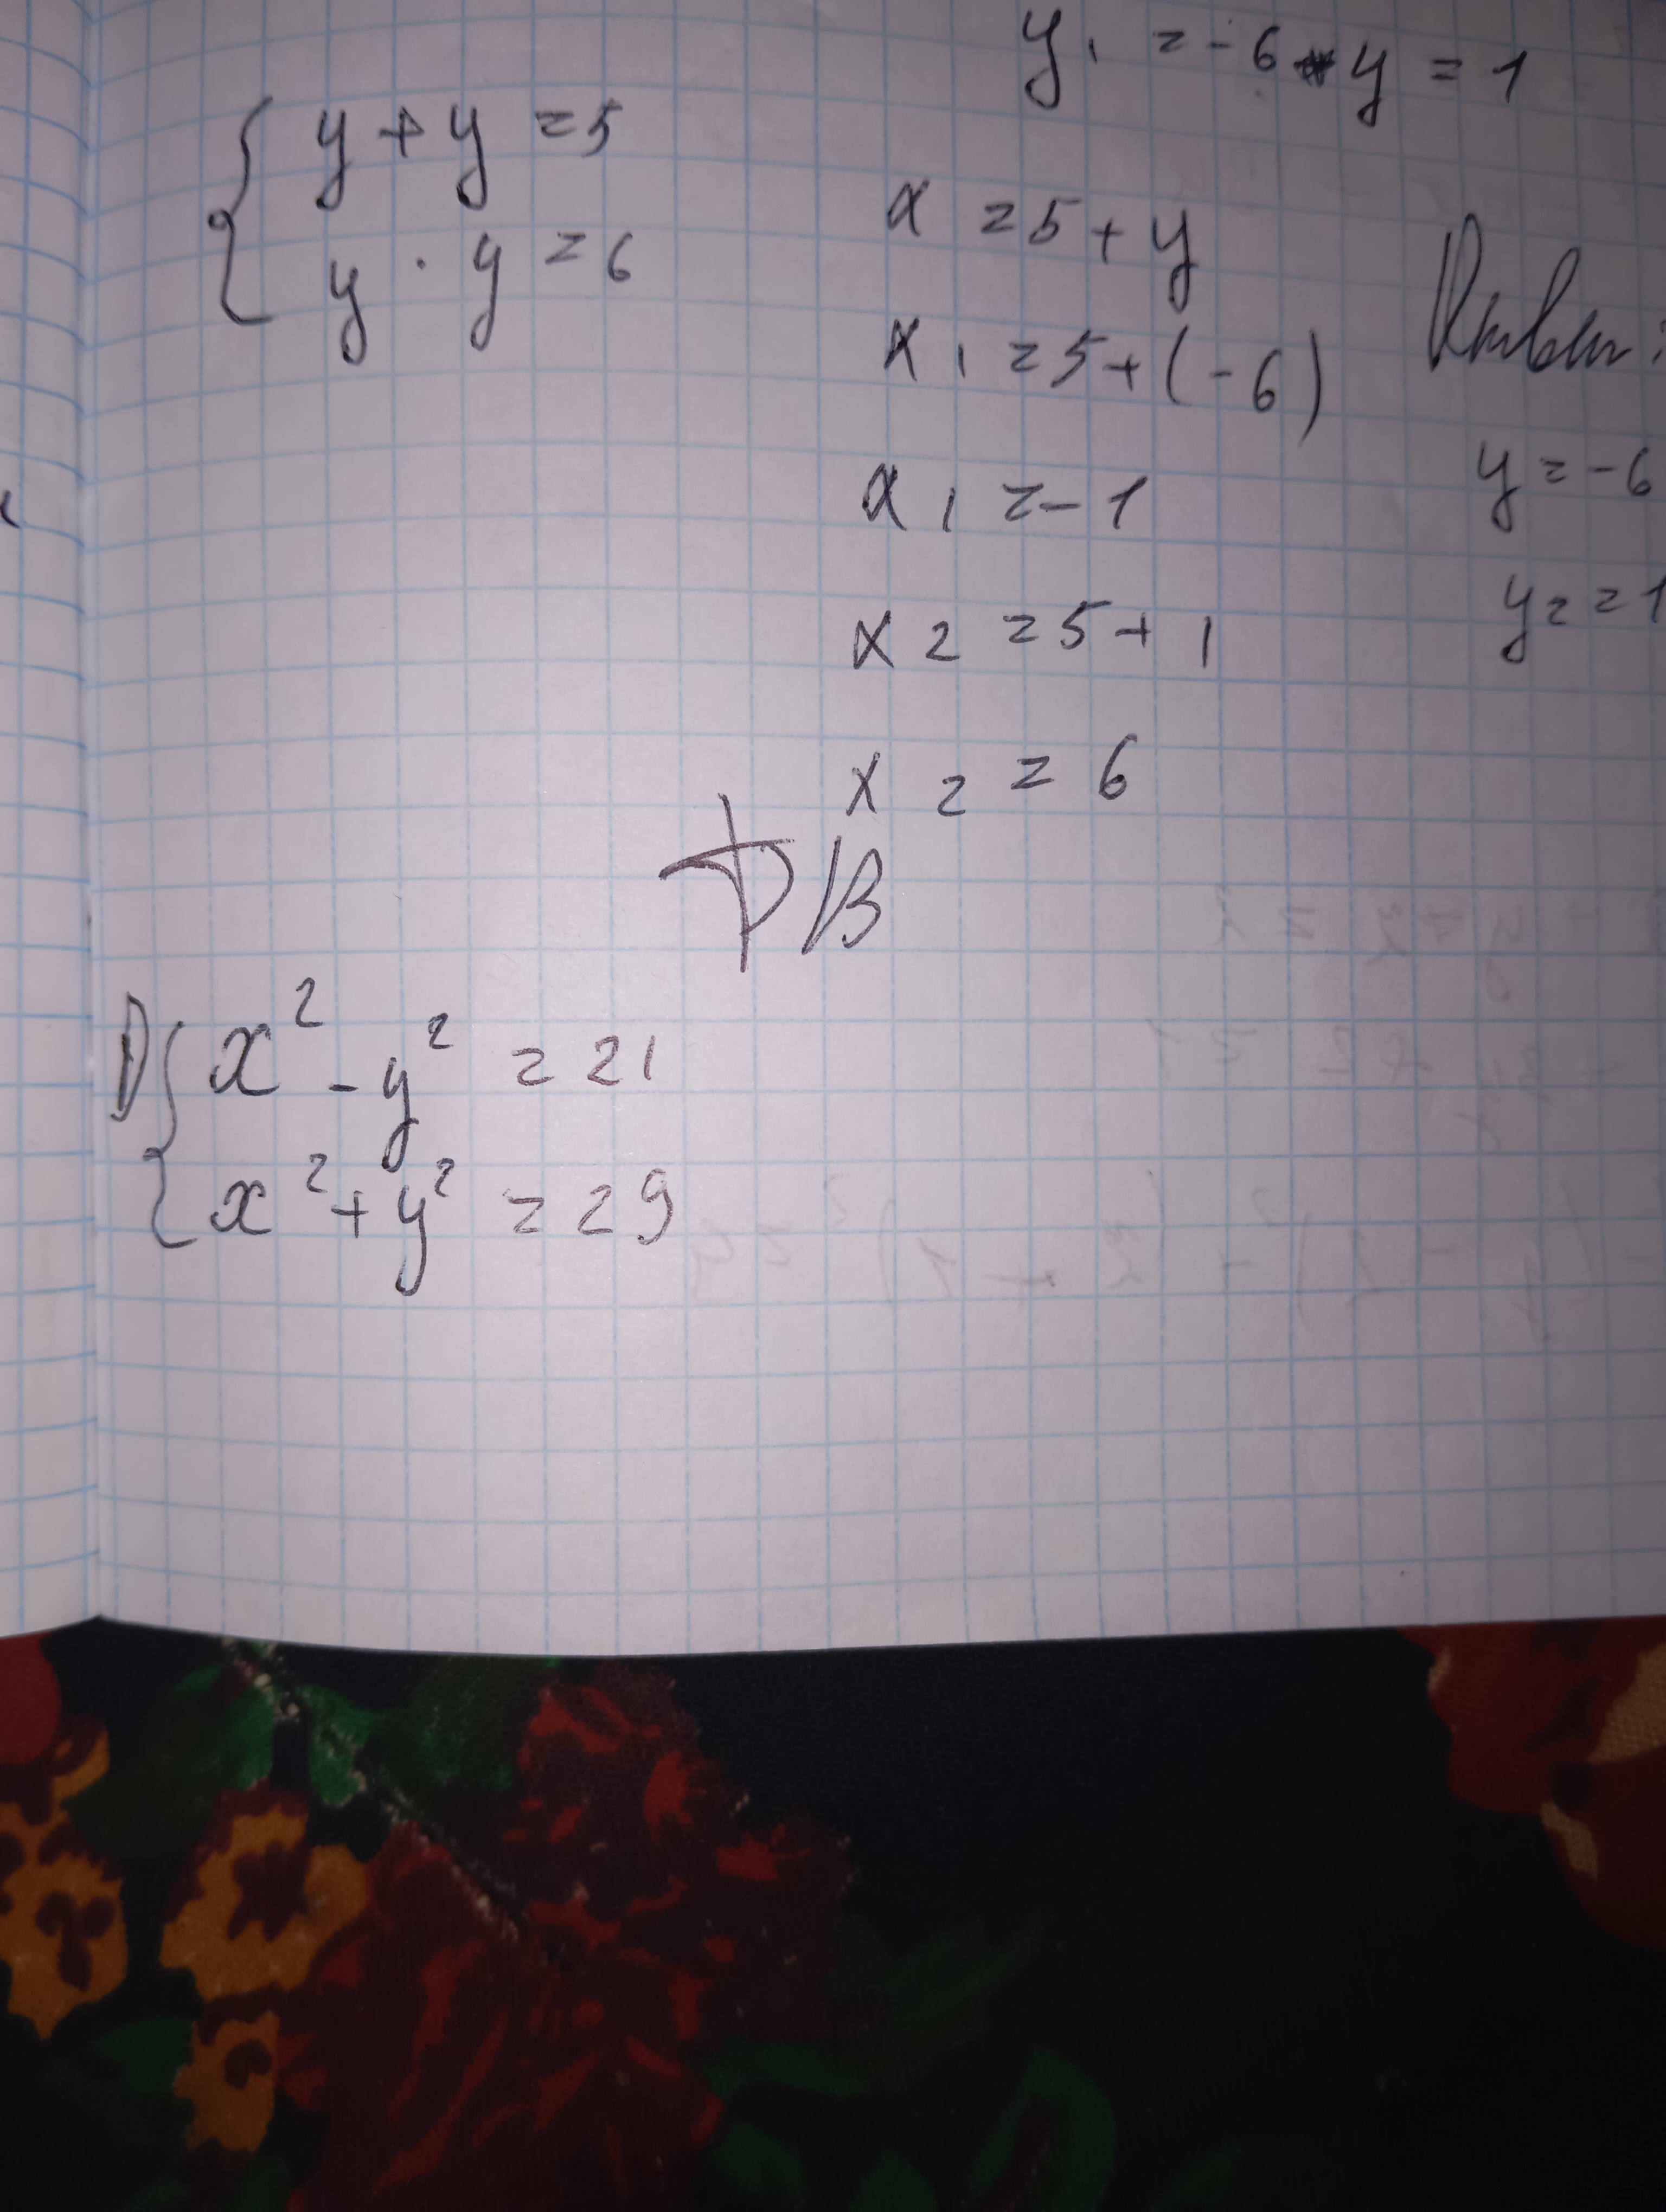 y₁ = -6 y = 1
{ y + y = 5
y · y = 6
x = 5 + y
x₁ = 5 + (-6)
x₁ = -1
x₂ = 5 + 1
x₂ = 6
y = -6
y₂ = 1
Д/З
{ x² - y² = 21
x² + y² = 29